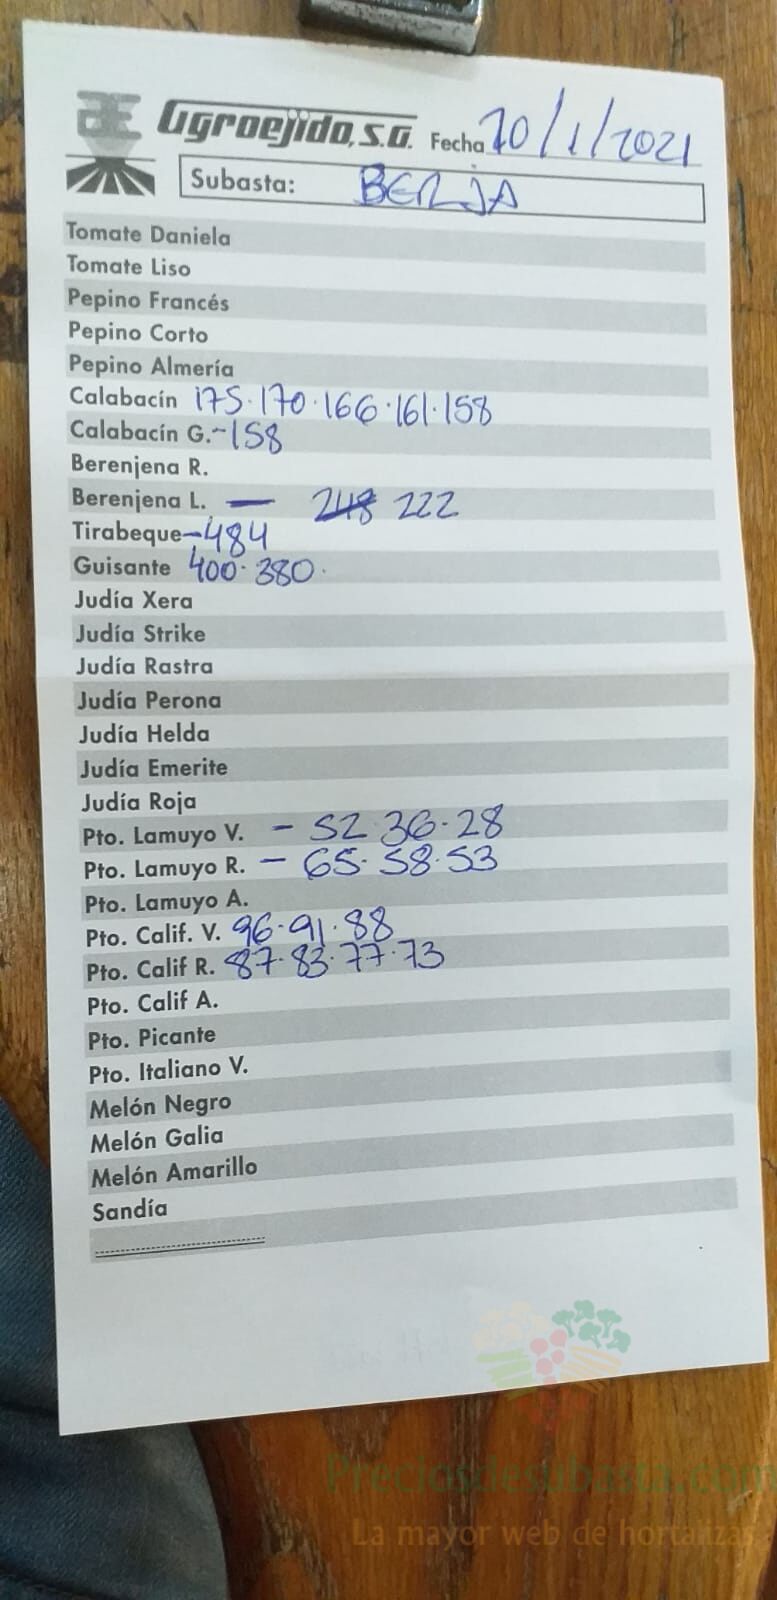 Agroejido, S.A. Fecha 20/1/2021
Subasta: BERJA
Tomate Daniela
Tomate Liso
Pepino Francés
Pepino Corto
Pepino Almería
Calabacín 175·170·166·161·158
Calabacín G.-158
Berenjena R.
Berenjena L. — 248 222
Tirabeque-484
Guisante 400·380·
Judía Xera
Judía Strike
Judía Rastra
Judía Perona
Judía Helda
Judía Emerite
Judía Roja
Pto. Lamuyo V. - 52 36·28
Pto. Lamuyo R. - 65·58·53
Pto. Lamuyo A.
Pto. Calif. V. 96·91·88
Pto. Calif R. 87·83·77·73
Pto. Calif A.
Pto. Picante
Pto. Italiano V.
Melón Negro
Melón Galia
Melón Amarillo
Sandía
Preciosdesubasta.com
La mayor web de hortalizas